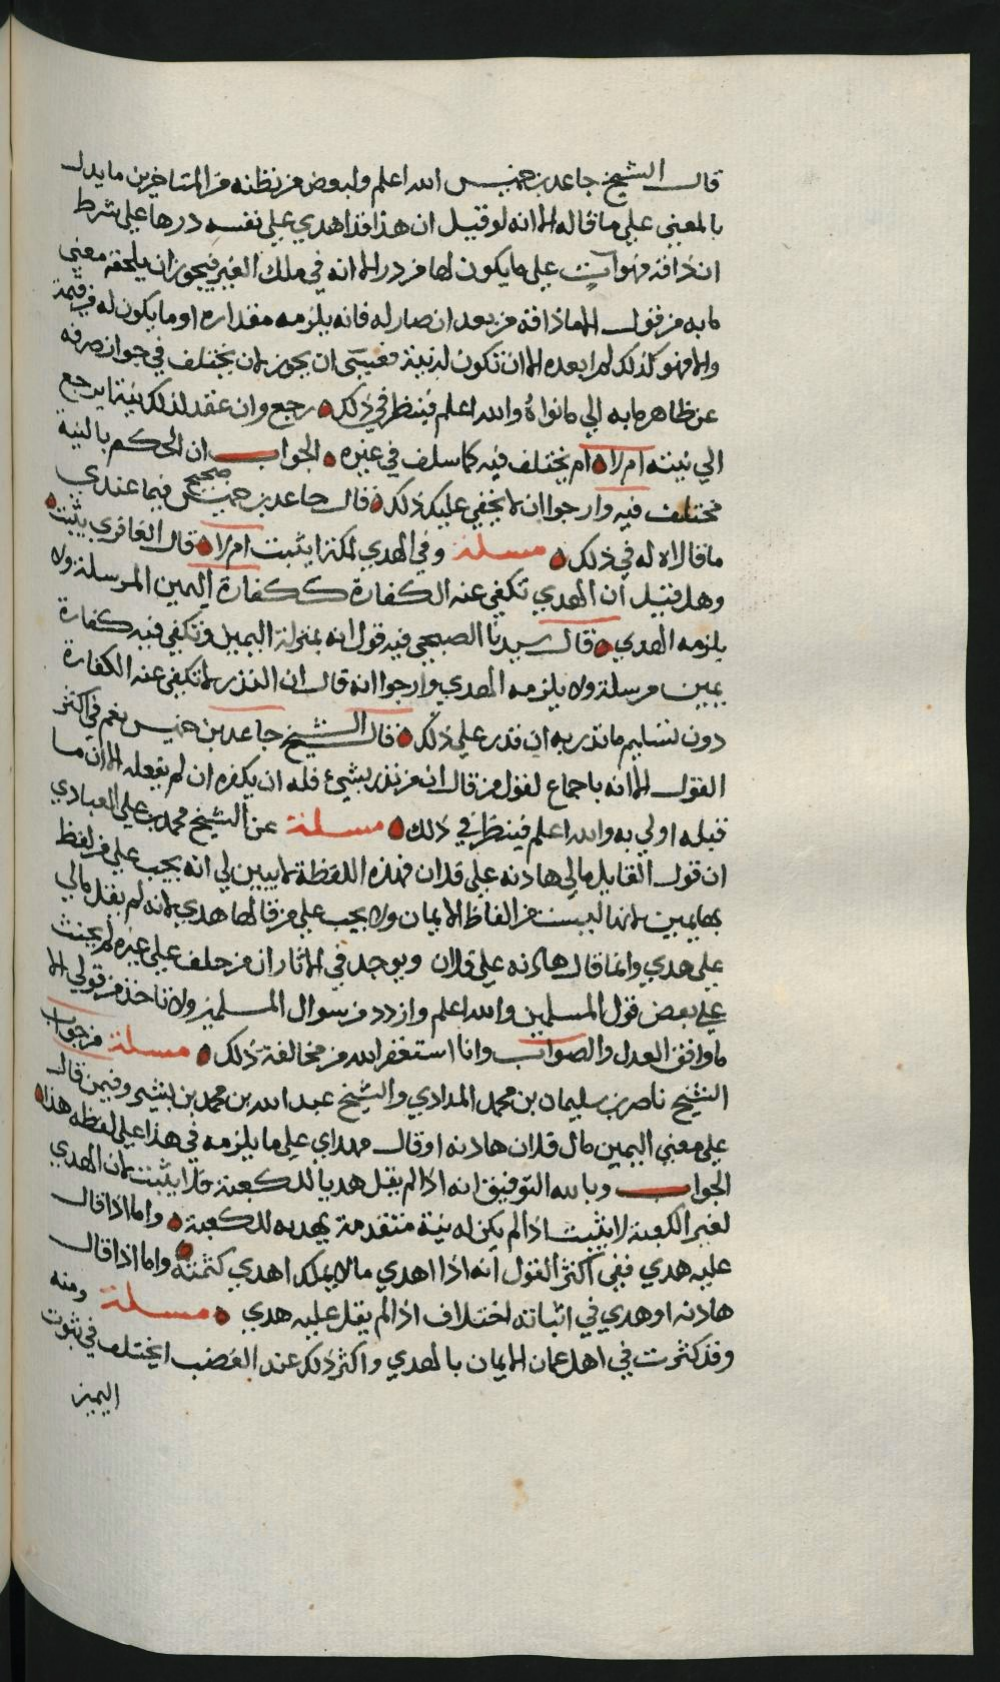 قال الشيخ جاعد بن خميس الله اعلم ولبعض من نظنه من المتاخرين ما يدل
بالمعنى على ما قاله الا انه لو قيل ان هذا قد اهدي على نفسه درها على شرط
ان ذاقه وهو آت على ما يكون لها من در الا انه في ملك الغير فيجوز ان يلحقه معنى
ما به من قول الا ما ذاقه من بعد ان صار له فانه يلزمه مقداره او ما يكون له من قيمة
والا فهو كذلك لم ابعده الا ان تكون له نية فعسى ان يجوز لان يختلف في جواز صرفه
عن ظاهر ما به الي ما نواهُ والله اعلم فينظر في ذلك رجع وان عقد لذلك نية ايرجع
الي نيته ام لا ام يختلف فيه كما سلف في غيره الجواب ان الحكم بالنية
مختلف فيه وارجوا ان لا يخفي عليك ذلك قال جاعد بن خميس صحيح فيما عندي
ما قالاه له في ذلك مسلة وفي الهدي لمكة ايثبت ام لا قال الغافري يثبت
وهل قيل ان الهدي تكفي عنه الكفارة ككفارة اليمين المرسلة ولا
يلزمه الهدي قال سيدنا الصبحي فيه قول انه بمنزلة اليمين وتكفي فيه كفارة
يمين مرسلة ولا يلزمه الهدي وارجوا انه قال ان النذر لا تكفي عنه الكفارة
دون تسليم ما نذر به ان قدر علي ذلك قال الشيخ جاعد بن خميس نعم في اكثر
القول الا انه باجماع لقول من قال ان من نذر بشيء فله ان يكفره ان لم يفعله الا ان ما
قبله اولي به والله اعلم فينظر في ذلك مسلة عن الشيخ محمد بن علي العبادي
ان قول القايل مالي هادنه علي فلان فهذه اللفظة لا يبين لي انه يجب علي من لفظ
بها يمين لانها ليست من الفاظ الايمان ولا يجب علي من قالها هدي لانه لم يقل مالي
علي هدي وانما قال هادنه علي فلان ويوجد في الاثار ان من حلف علي غيره لم يحنث
علي بعض قول المسلمين والله اعلم وازدد من سوال المسلمين ولا تاخذ من قولي الا
ما وافق العدل والصواب وانا استغفر الله من مخالفة ذلك مسلة من جواب
الشيخ ناصر بن سليمان بن محمد المدادي والشيخ عبد الله بن محمد بن بشير وفيمن قال
علي معني اليمين مال فلان هادنه او قال مهداي علي ما يلزمه في هذا علي لفظه هذا
الجواب وبالله التوفيق انه اذا لم يقل هديا للكعبة فلا يثبت لان الهدي
لغير الكعبة لا يثبت اذا لم يكن له نية متقدمة يهديه للكعبة واما اذا قال
عليه هدي ففي اكثر القول انه اذا اهدي مالا يملك اهدي كثمنه واما اذا قال
هادنه او هدي في اثباته اختلاف اذا لم يقل عليه هدي مسلة ومنه
وقد كثرت في اهل عمان الايمان بالهدي واكثر ذلك عند الغضب ايختلف في ثبوت
اليمين